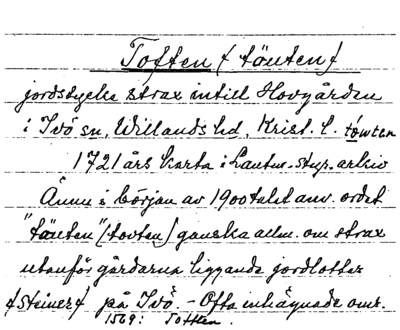 Toften ( täuten )
jordstycke strax intill Hovgården
i Ivö sn, Willands hd, Krist. l. tówten
1721 års karta i Lantm. styr. arkiv
Ännu i början av 1900talet anv. ordet
"täuten" (tovten) ganska allm. om strax
utanför gårdarna liggande jordlotter
/ Steiner / på Ivö. - Ofta inhägnade omr.
1569: Tofften.